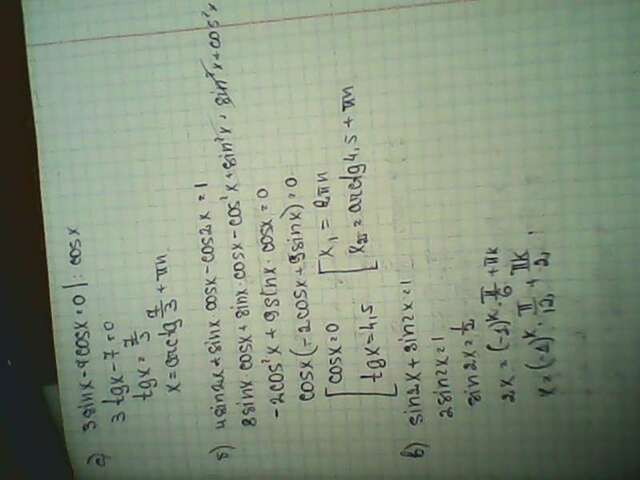 а) 3sinx - 7cosx = 0 | : cosx
3tgx - 7 = 0
tgx = 7/3
x = arctg 7/3 + πn
б) 4sin2x + sinx cosx - cos2x = 1
8sinx cosx + sinx · cosx - cos²x + sin²x = sin²x + cos²x
-2cos²x + 9sinx · cosx = 0
cosx(-2cosx + 9sinx) = 0
[cosx = 0 [x₁ = 2πn
[tgx = 4,5 [x₂ = arctg 4,5 + πn
в) sin2x + sin2x = 1
2sin2x = 1
sin2x = 1/2
2x = (-1)ᵏ · π/6 + πk
x = (-1)ᵏ · π/12 + πk/2